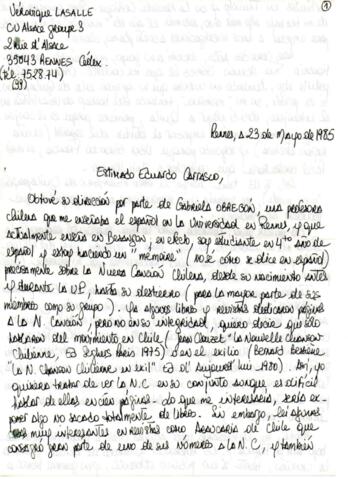 1
Véronique LASALLE
CU Alsace groupe 3
2 rue d'Alsace
35043 RENNES Cédex
(tel. 75.28.74)
(99)
Rennes, a 23 de Mayo de 1985
ESTIMADO EDUARDO CARRASCO,
Obtuve su dirección por parte de Gabriela OBREGÓN, una profesora
chilena que me enseñaba el español en la Universidad en Rennes, y que
actualmente enseña en Besançon, en efecto, soy estudiante en 4to año de
español y estoy haciendo un "mémoire" (no sé cómo se dice en español)
precisamente sobre la Nueva Canción Chilena, desde su nacimiento antes
y durante la U.P., hasta su destierro (para la mayor parte de sus
miembros como su grupo). Ya algunos libros y revistas dedicaron páginas
a la N. Canción, pero no en su integridad, quiero decir que sólo
hablaron del movimiento en Chile (Jean Clouzet "La Nouvelle chanson
chilienne, Ed Seghers Paris 1975) o en el exilio (Bernard Bessière
"La N. Chanson Chilienne en exil" Ed d'Aujourd'hui 1980). Así, yo
quisiera tratar de ver la N.C en su conjunto aunque es difícil
hablar de ellas en cien páginas. Lo que me interesaría, sería ex-
poner algo no sacado totalmente de libros. Sin embargo, leí algunas
muy interesantes en revistas como Araucaria de Chile que
consagró gran parte de uno de sus números a la N.C, y también